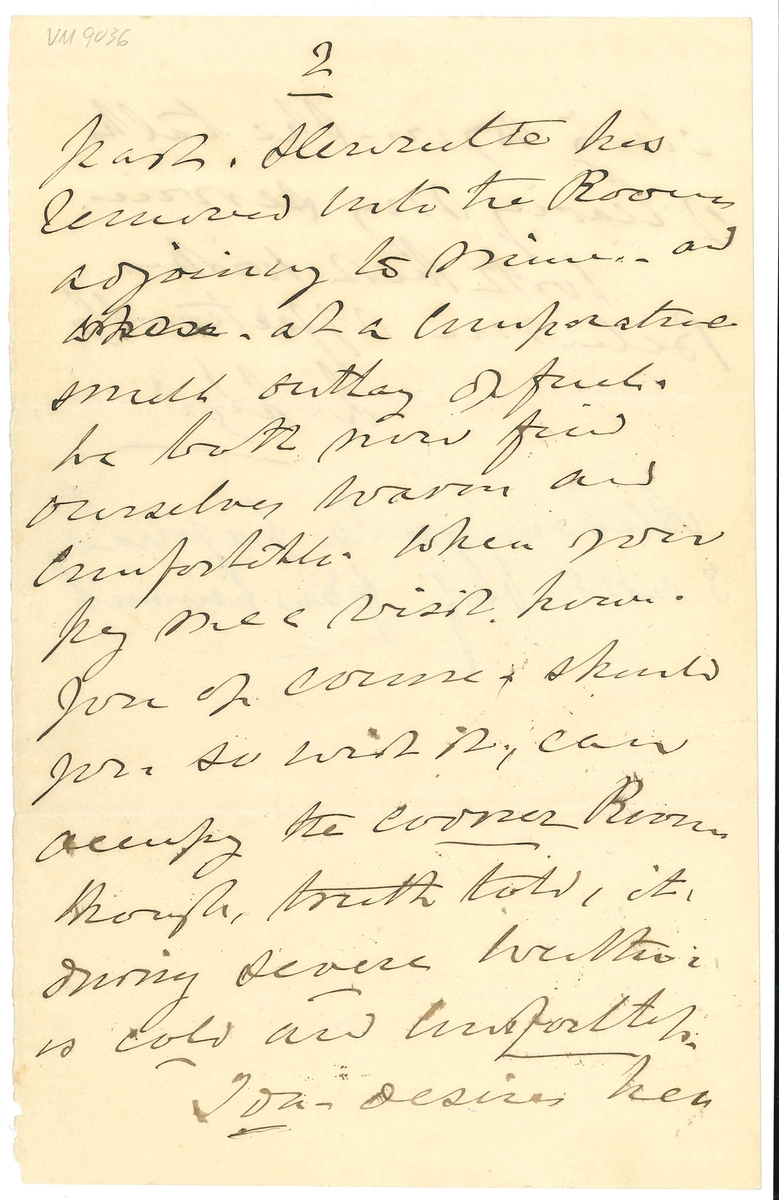 VM 9036
2
past. Henriette has
removed into the Rooms
adjoining to mine - and
where - at a comparative
small outlay of fuel.
we both now find
ourselves warm and
comfortable. When you
pay me a visit,
you of course, should
you so wish it, can
occupy the corner Room
though, truth told, it,
during severe weather,
is cold and
Ida - desires her